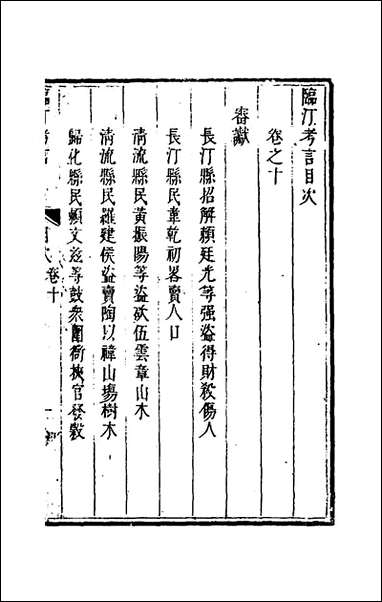 臨汀考言目次
卷之十
審讞
長汀縣招解賴廷光等强盜得財殺傷人
長汀縣民韋乾初畧賣人口
淸流縣民黃振陽等盜砍伍雲章山木
淸流縣民羅建侯盜賣陶以禕山塲樹木
歸化縣民賴文茲等鼓衆圍衙挾官發穀
目次 卷十